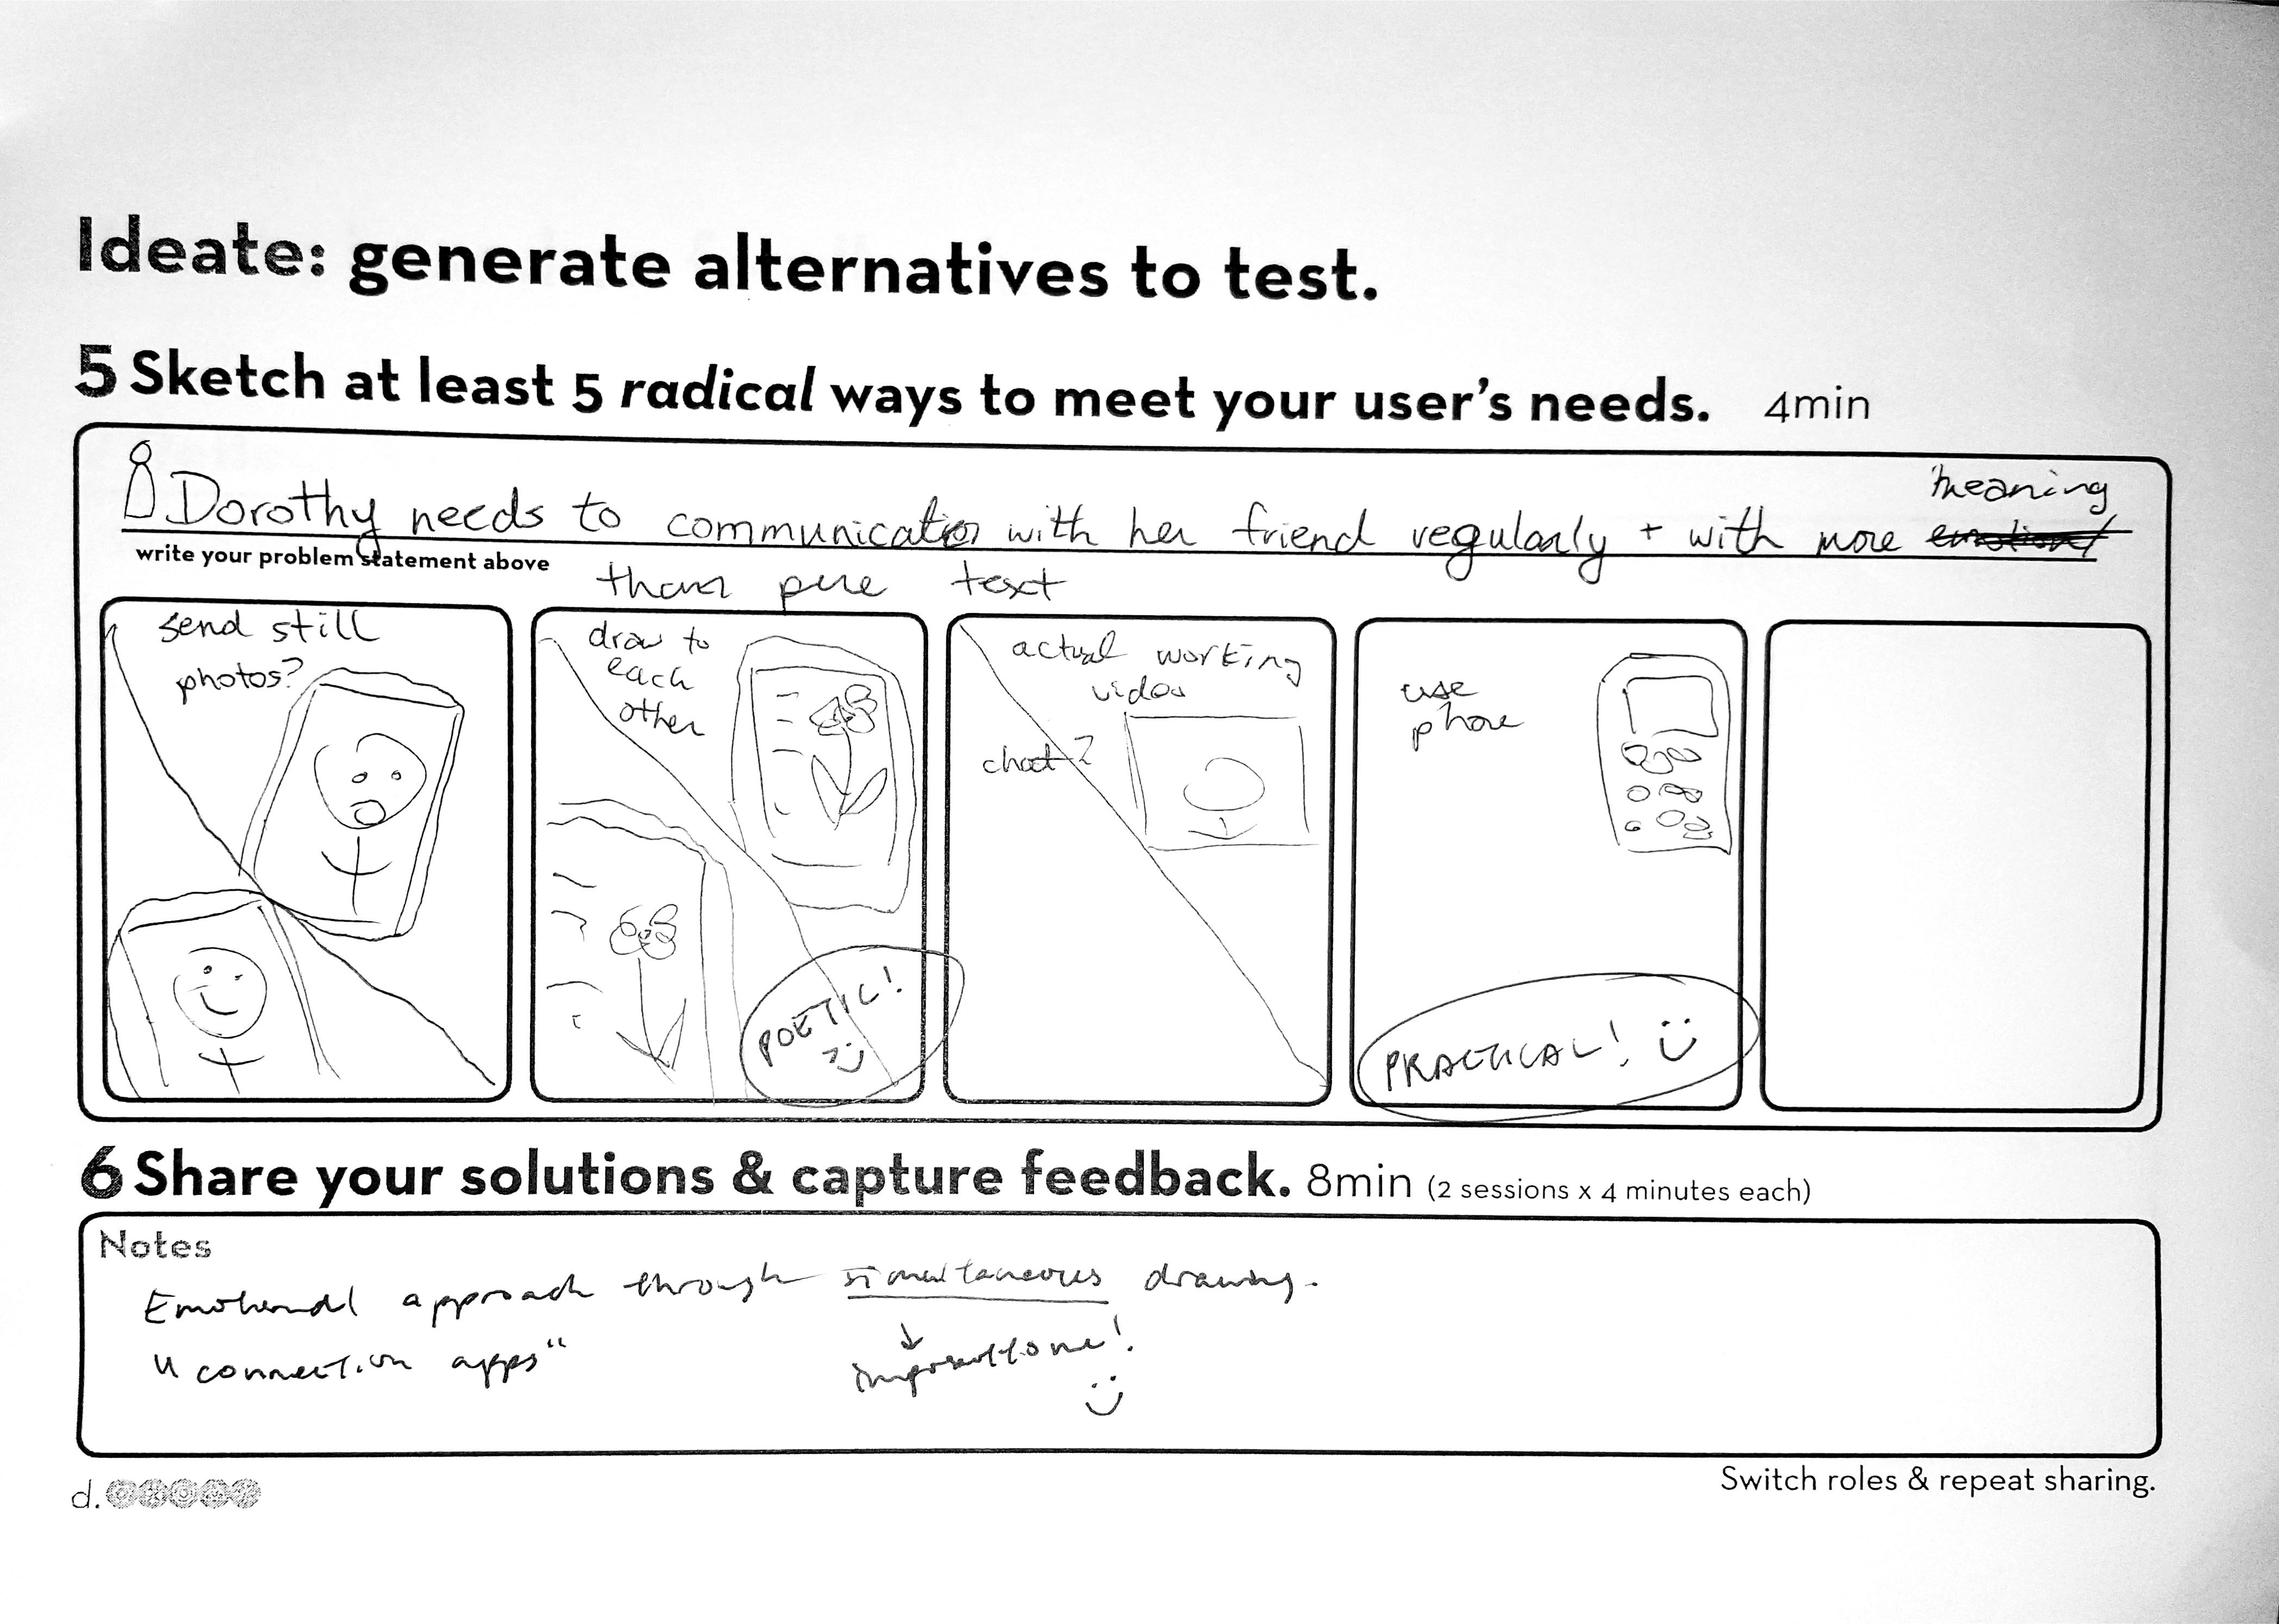 Ideate: generate alternatives to test.
5 Sketch at least 5 radical ways to meet your user's needs. 4min
meaning
Dorothy needs to communicatio with her friend regularly + with more emotional
write your problem statement above
than pure text
send still
photos?
draw to
each
other
POETIC!
actual working
video
chat?
use
phone
PRACTICAL!
6 Share your solutions & capture feedback. 8min (2 sessions x 4 minutes each)
Notes
Emotional approach through simultaneous drawing.
"connection apps"
d.
Switch roles & repeat sharing.